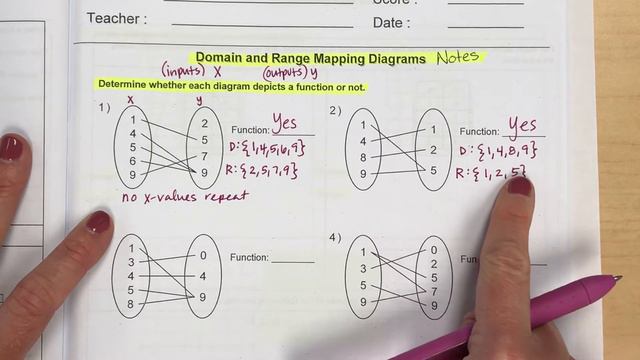 Score :
Teacher :
Date :
Domain and Range Mapping Diagrams Notes
(inputs) x (outputs) y
Determine whether each diagram depicts a function or not.
1)
x y
1
4
5
6
9
2
5
7
9
Function: Yes
D:{1,4,5,6,9}
R:{2,5,7,9}
no x-values repeat
2)
1
4
8
9
1
2
5
Function: Yes
D:{1,4,8,9}
R:{1,2,5}
1
3
4
5
8
0
4
9
Function:
4)
1
3
5
9
0
2
5
7
9